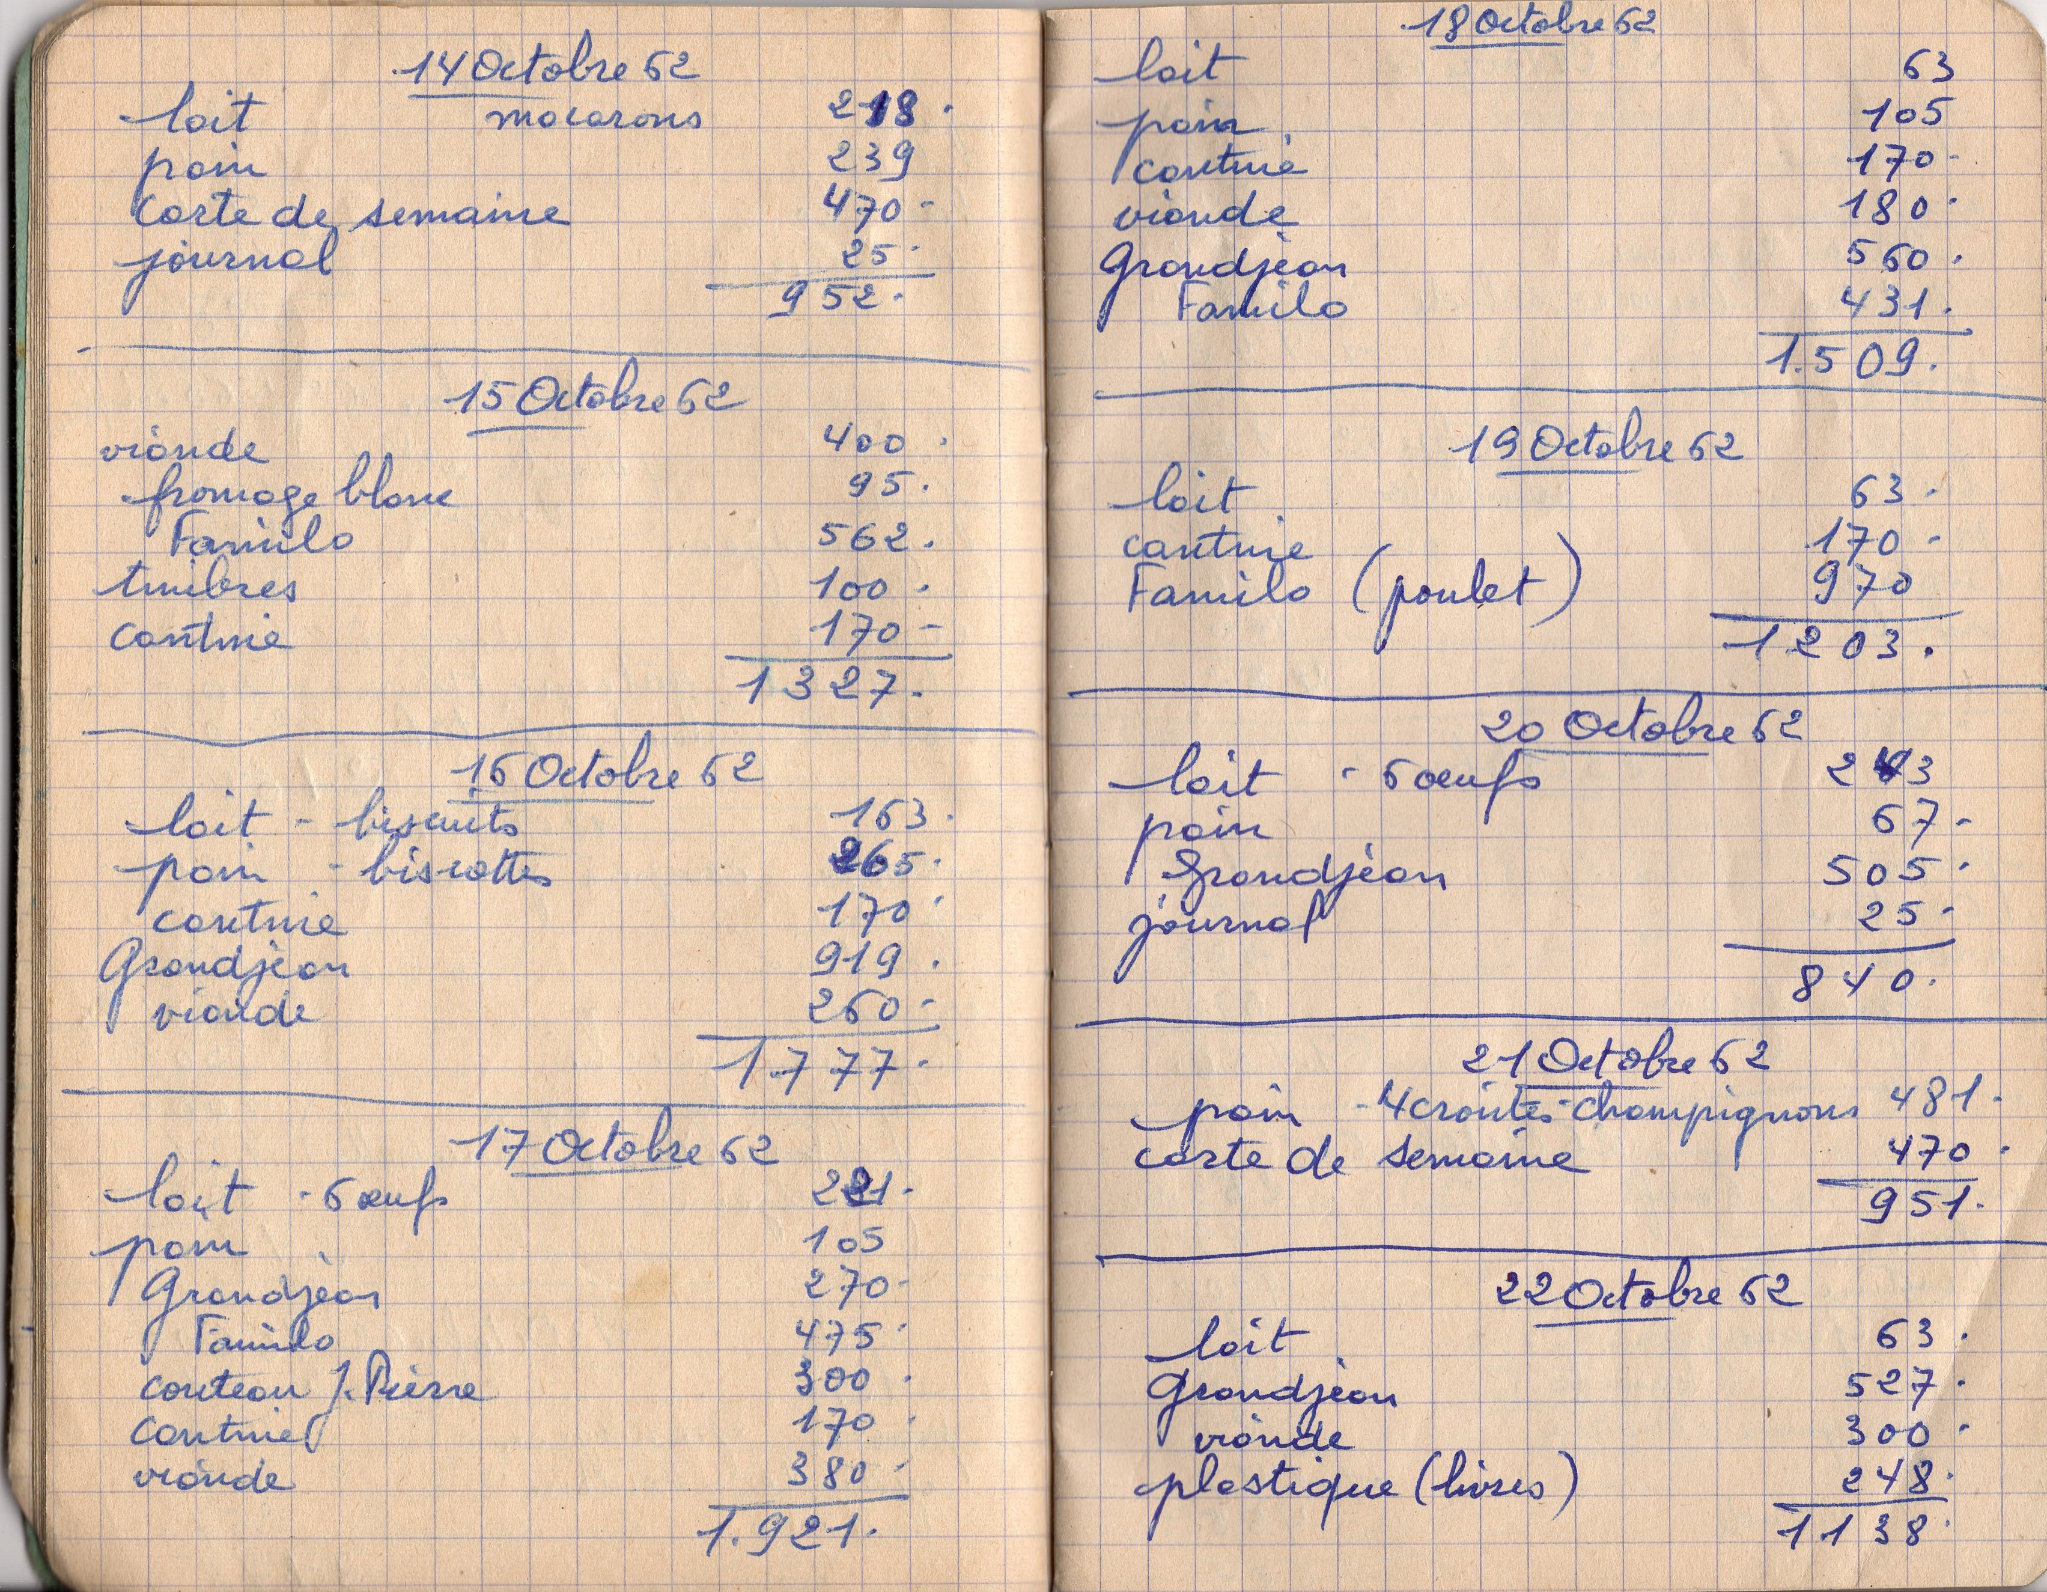 14 Octobre 62
lait macarons 218.
pain 239
carte de semaine 470-
journal 25.
952.
15 Octobre 62
viande 400.
fromage blanc 95.
Familo 562.
timbres 100.
cantine 170-
1327.
16 Octobre 62
lait - biscuits 163.
pain - biscottes 265.
cantine 170.
Grandjean 919.
viande 260-
1.777.
17 Octobre 62
lait - 6 œufs 221.
pain 105
Grandjean 270-
Familo 475.
couteau J. Pierre 300.
cantine 170.
viande 380.
1.921.
18 Octobre 62
lait 63
pain 105
cantine 170-
viande 180.
Grandjean 560.
Familo 431.
1.509.
19 Octobre 62
lait 63.
cantine 170-
Familo (poulet) 970
1203.
20 Octobre 62
lait - 6 œufs 243
pain 67-
Grandjean 505.
journal 25-
840.
21 Octobre 62
pain - 4 croûtes - champignons 481.
carte de semaine 470.
951.
22 Octobre 62
lait 63.
Grandjean 527.
viande 300-
plastique (livres) 248.
1138.